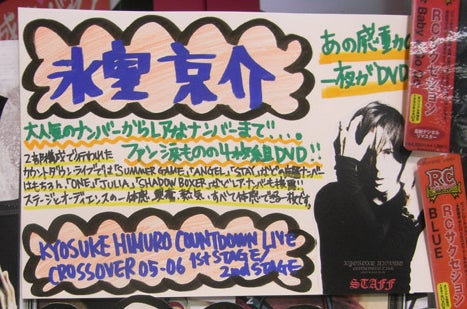 氷室京介
あの感動の
一夜がDVD
大人気のナンバーからレアなナンバーまで…。
ファン涙ものの4枚組DVD!!
2部構成で行われた
カウントダウンライブでは「SUMMER GAME」「ANGEL」「STAY」などの
はもちろん、「ONE」「JULIA」「SHADOW BOXER」などレアナンバーも
ステージとオーディエンスの一体感、興奮、
KYOSUKE HIMURO COUNTDOWN LIVE
CROSSOVER 05-06 1st STAGE/
2nd STAGE
KYOSUKE HIMURO
STAFF
RCサクセション
RC
RCサクセション
BLUE